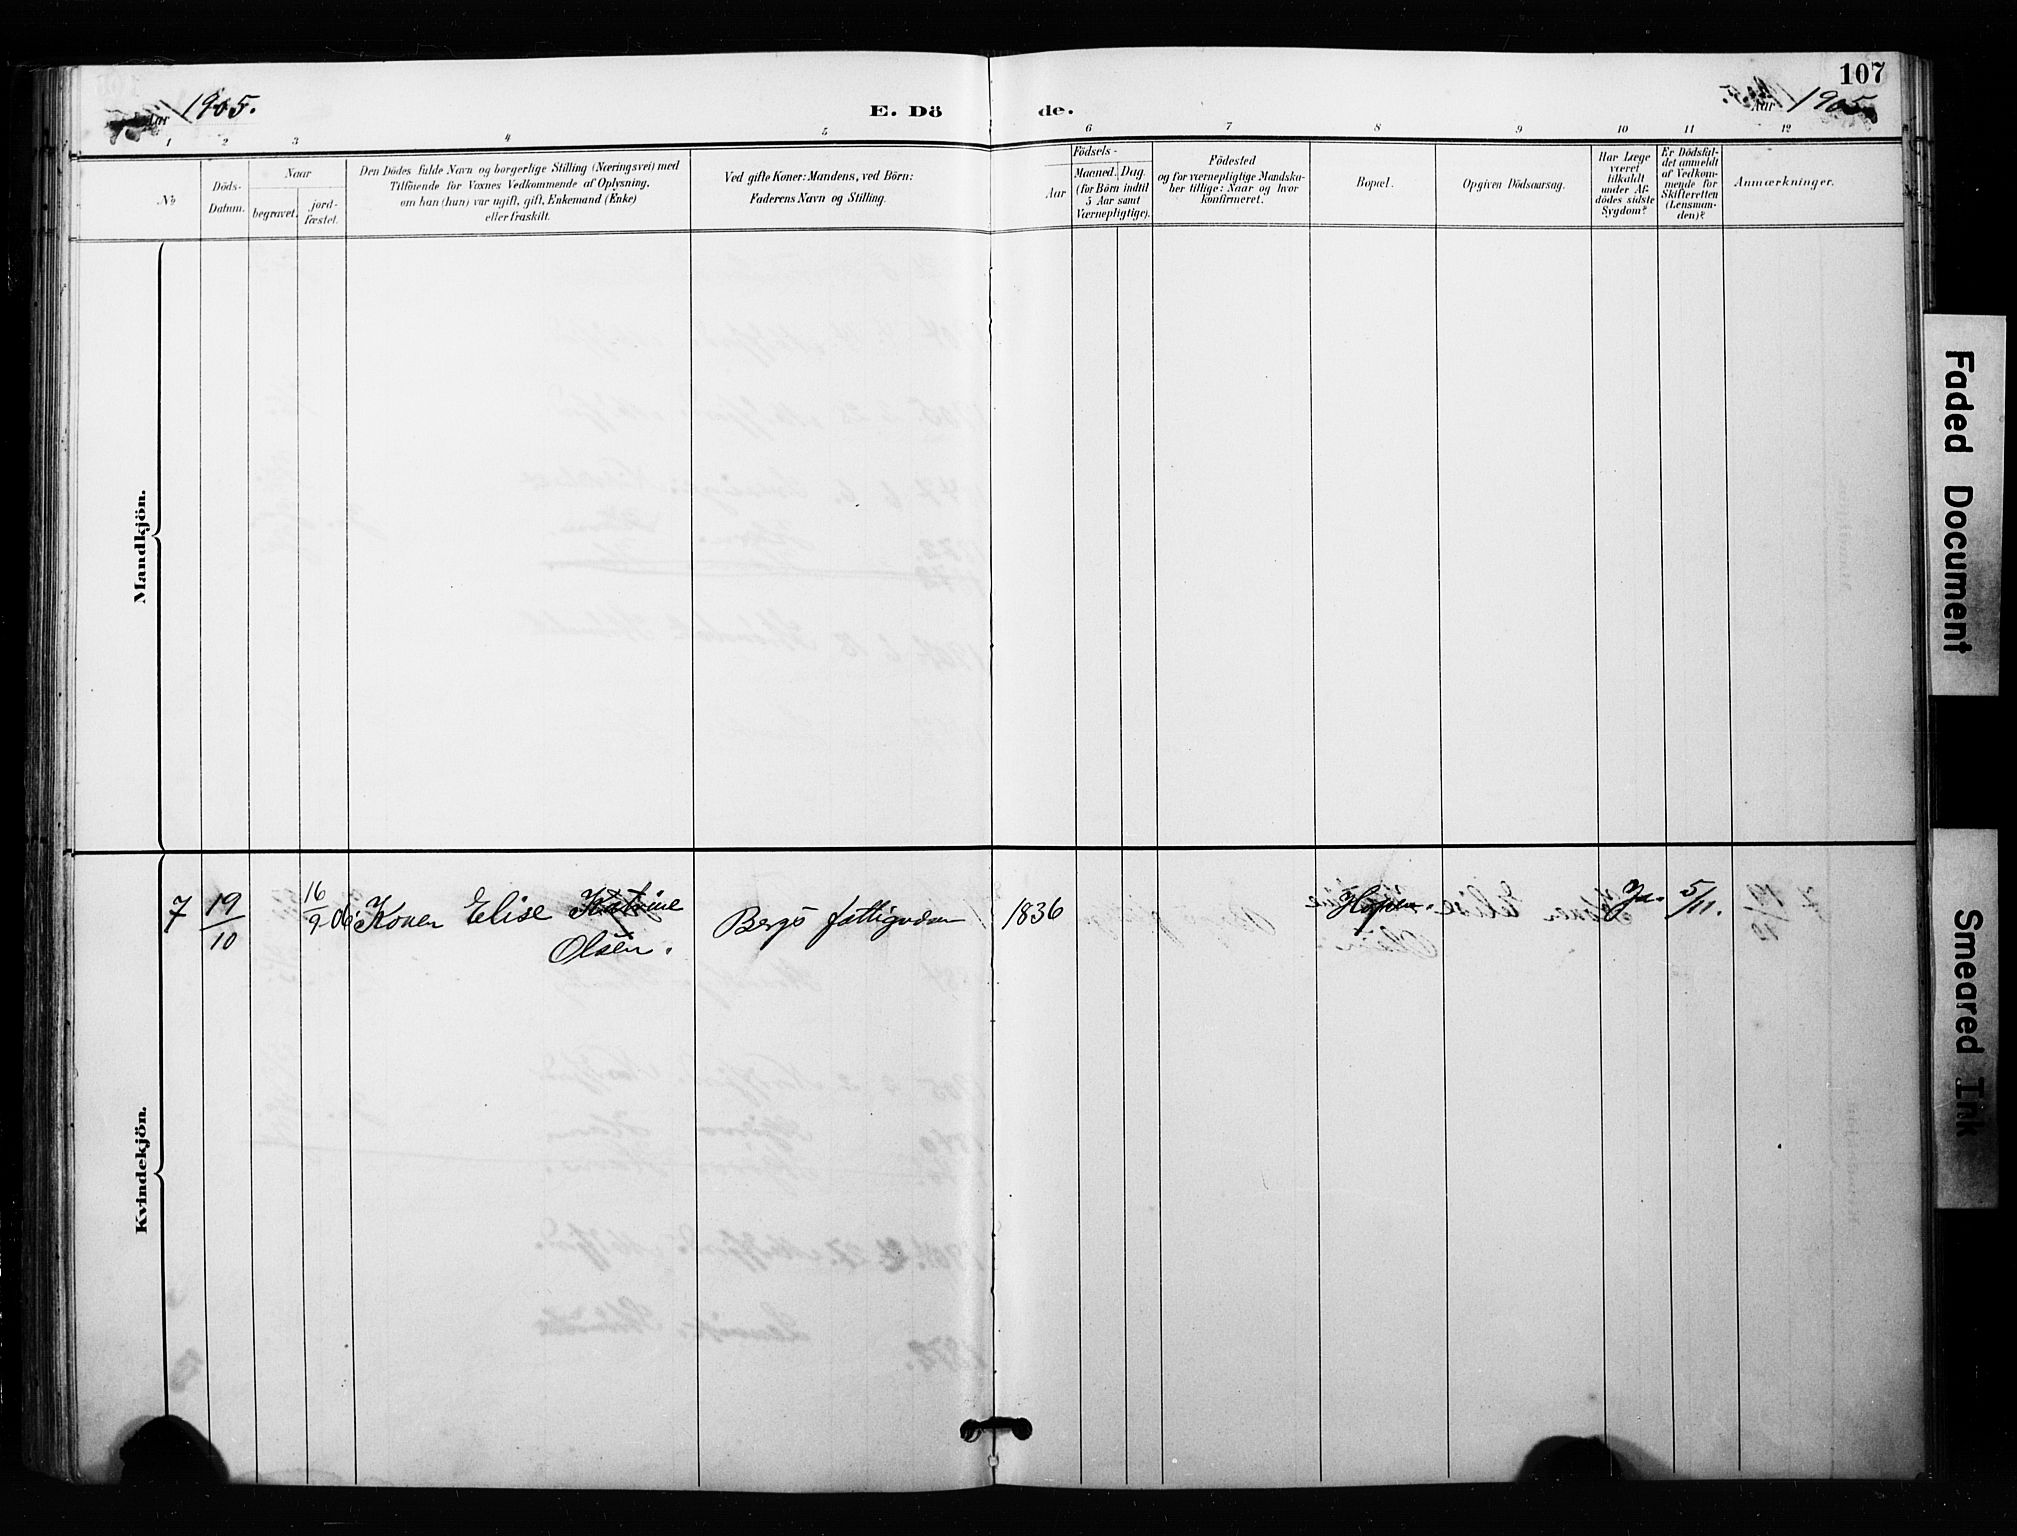 107
Aar 1905.
E. Döde.
Aar 1905
1 2 3 4 5 6 7 8 9 10 11 12
No
Döds-
Datum.
Naar
begravet.
jord-
fæstet.
Den Dödes fulde Navn og borgerlige Stilling (Næringsvei) med
Tilföiende for Voxnes Vedkommende af Oplysning,
om han (hun) var ugift, gift, Enkemand (Enke)
eller fraskilt.
Ved gifte Koner: Mandens, ved Börn:
Faderens Navn og Stilling.
Födsels-
Aar
Maaned.
Dag.
(for Börn indtil
5 Aar samt
Værnepligtige).
Födested
og for værnepligtige Mandska-
ber tillige: Naar og hvor
konfirmeret.
Bopæl.
Opgiven Dödsaarsag.
Har Læge
været
tilkaldt
under Af-
dödes sidste
Sygdom?
Er Dödsfal-
det anmeldt
af Vedkom-
mende for
Skifteretten
(Lensman-
den)?
Anmærkninger.
Mandkjön.
Kvindekjön.
7 19/10 16/9 06 Konen Elise Katrine
Olsen. 1836 Ja. 5/11.
Faded Document
Smeared Ink